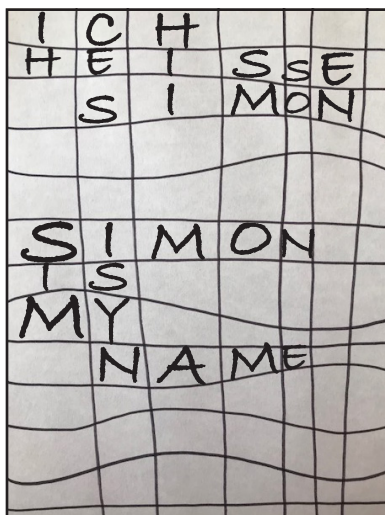 ICH
HEISSE
SIMON
SIMON
IS
MY
NAME